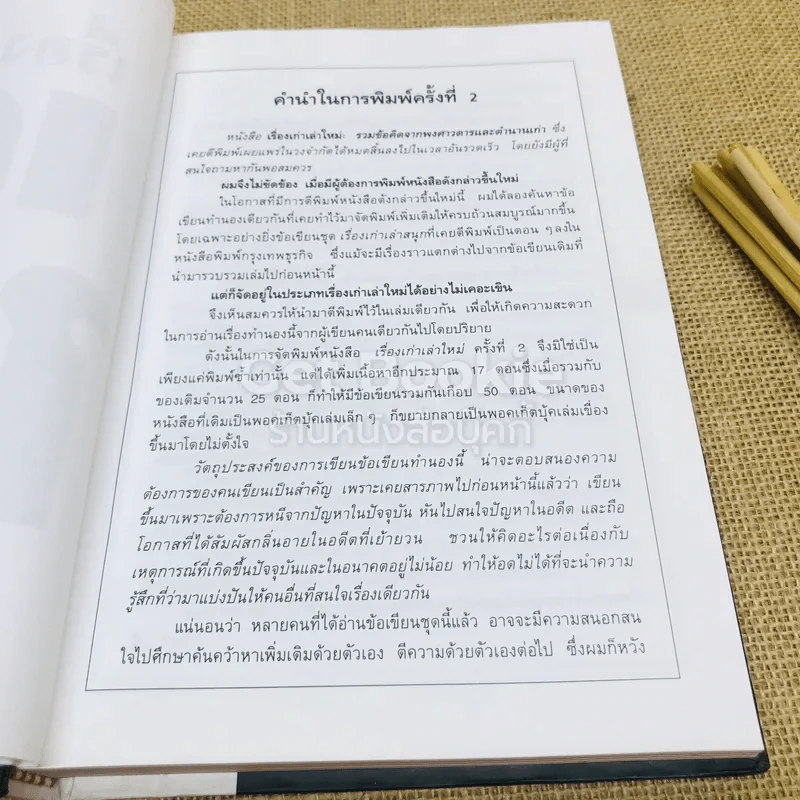 คำนำในการพิมพ์ครั้งที่ 2
หนังสือ เรื่องเก่าเล่าใหม่: รวมข้อคิดจากพงศาวดารและตำนานเก่า ซึ่ง
เคยตีพิมพ์เผยแพร่ในวงจำกัดได้หมดสิ้นลงไปในเวลาอันรวดเร็ว โดยยังมีผู้ที่
สนใจถามหากันพอสมควร
ผมจึงไม่ขัดข้อง เมื่อมีผู้ต้องการพิมพ์หนังสือดังกล่าวขึ้นใหม่
ในโอกาสที่มีการตีพิมพ์หนังสือดังกล่าวขึ้นใหม่นี้ ผมได้ลองค้นหาข้อ
เขียนทำนองเดียวกันที่เคยทำไว้มาจัดพิมพ์เพิ่มเติมให้ครบถ้วนสมบูรณ์มากขึ้น
โดยเฉพาะอย่างยิ่งข้อเขียนชุด เรื่องเก่าเล่าสนุกที่เคยตีพิมพ์เป็นตอน ๆ ลงใน
หนังสือพิมพ์กรุงเทพธุรกิจ ซึ่งแม้จะมีเรื่องราวแตกต่างไปจากข้อเขียนเดิมที่
นำมารวบรวมเล่มไปก่อนหน้านี้
แต่ก็จัดอยู่ในประเภทเรื่องเก่าเล่าใหม่ได้อย่างไม่เคอะเขิน
จึงเห็นสมควรให้นำมาตีพิมพ์ไว้ในเล่มเดียวกัน เพื่อให้เกิดความสะดวก
ในการอ่านเรื่องทำนองนี้จากผู้เขียนคนเดียวกันไปโดยปริยาย
ดังนั้นในการจัดพิมพ์หนังสือ เรื่องเก่าเล่าใหม่ ครั้งที่ 2 จึงมิใช่เป็น
เพียงแค่พิมพ์ซ้ำเท่านั้น แต่ได้เพิ่มเนื้อหาอีกประมาณ 17 ตอนซึ่งเมื่อรวมกับ
ของเดิมจำนวน 25 ตอน ก็ทำให้มีข้อเขียนรวมกันเกือบ 50 ตอน ขนาดของ
หนังสือที่เดิมเป็นพอคเก็ตบุ้คเล่มเล็ก ๆ ก็ขยายกลายเป็นพอคเก็ตบุ้คเล่มเขื่อง
ขึ้นมาโดยไม่ตั้งใจ
ร้านหนังสือบุ๊คกี้
วัตถุประสงค์ของการเขียนข้อเขียนทำนองนี้ น่าจะตอบสนองความ
ต้องการของคนเขียนเป็นสำคัญ เพราะเคยสารภาพไปก่อนหน้านี้แล้วว่า เขียน
ขึ้นมาเพราะต้องการหนีจากปัญหาในปัจจุบัน หันไปสนใจปัญหาในอดีต และถือ
โอกาสที่ได้สัมผัสกลิ่นอายในอดีตที่เย้ายวน ชวนให้คิดอะไรต่อเนื่องกับ
เหตุการณ์ที่เกิดขึ้นปัจจุบันและในอนาคตอยู่ไม่น้อย ทำให้อดไม่ได้ที่จะนำความ
รู้สึกที่ว่ามาแบ่งปันให้คนอื่นที่สนใจเรื่องเดียวกัน
แน่นอนว่า หลายคนที่ได้อ่านข้อเขียนชุดนี้แล้ว อาจจะมีความสนอกสน
ใจไปศึกษาค้นคว้าหาเพิ่มเติมด้วยตัวเอง ตีความด้วยตัวเองต่อไป ซึ่งผมก็หวัง